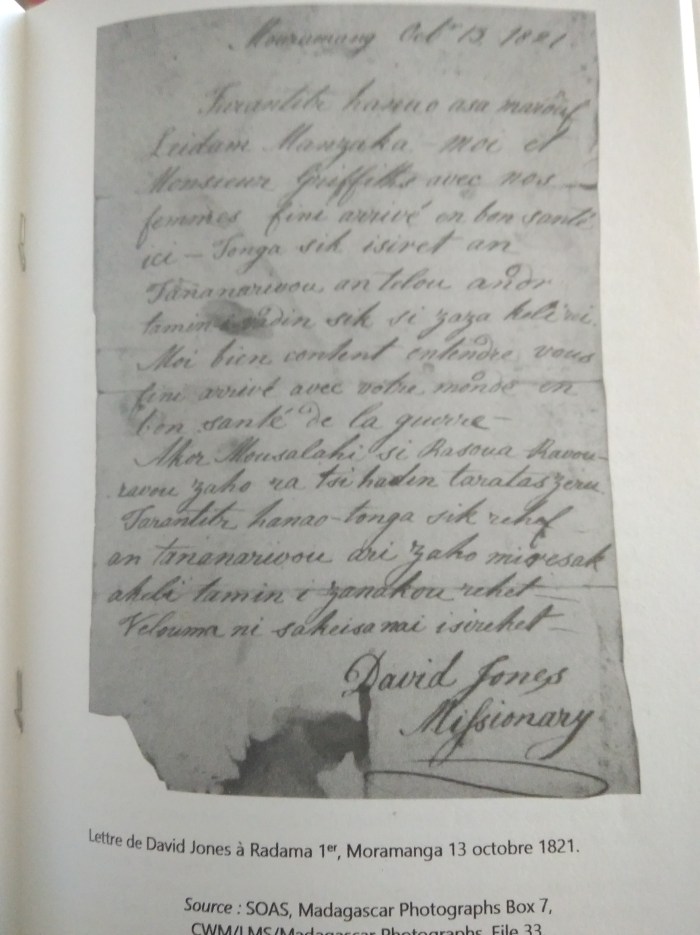 Mouramang Octr 13. 1821
Tarantitr hanao asa marouf
Leidam Manzaka - moi et
Monsieur Griffiths avec nos
femmes fini arrivé en bon santé
ici - Tonga sik isiret an
Tañanarivou an telou andr
tamin i vadin sik si zaza keli rei.
Moi bien content entendre vous
fini arrivé avec votre monde en
bon santé de la guerre -
Akor Mousalahi si Rasoua Ravou-
ravou zaho ra tsi hadin taratas
Tarantitr hanao - tonga sik rehef
an tananarivou ari zaho miresak
tamin i zanakou rehet -
Velouma ni isirehet -
David Jones
Missionary
Lettre de David Jones à Radama 1er, Moramanga 13 octobre 1821.
Source : SOAS, Madagascar Photographs Box 7,
CWM/LMS/Madagascar Photographs, File 33